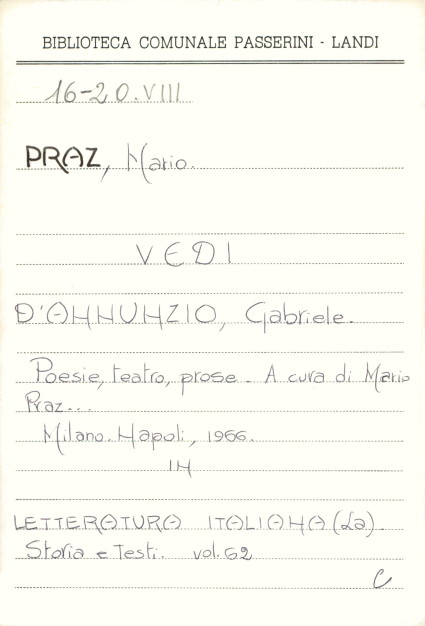 BIBLIOTECA COMUNALE PASSERINI - LANDI
16-20.VIII
PRAZ, Mario.
VEDI
D'ANNUNZIO, Gabriele.
Poesie, teatro, prose. A cura di Mario
Praz...
Milano. Napoli, 1966.
IN
LETTERATURA ITALIANA (La).
Storia e Testi. vol. 62
C